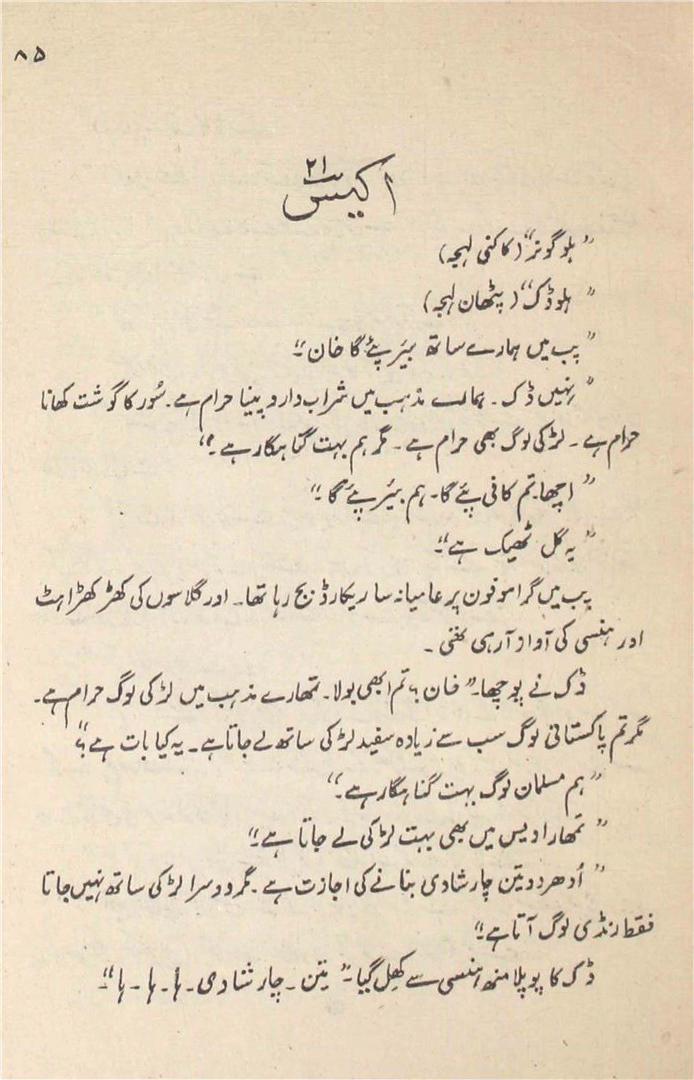 ۸۵
۲۱
اکیس
"ہلو گونر" (کاکنی لہجہ)
"ہلو ڈک" (پٹھان لہجہ)
"پب میں ہمارے ساتھ بیئر پئے گا خان"۔
"نہیں ڈک۔ ہمارے مذہب میں شراب دارو پینا حرام ہے۔ سُور کا گوشت کھانا
حرام ہے۔ لڑکی لوگ بھی حرام ہے۔ مگر ہم بہت گناہگار ہے۔"
"اچھا۔ تم کافی پئے گا۔ ہم بیئر پئے گا۔"
"یہ گل ٹھیک ہے"۔
پب میں گراموفون پر عامیانہ سا ریکارڈ بج رہا تھا۔ اور گلاسوں کی کھڑکھڑاہٹ
اور ہنسی کی آواز آ رہی تھی۔
ڈک نے پوچھا۔ "خان، تم ابھی بولا۔ تمھارے مذہب میں لڑکی لوگ حرام ہے۔
مگر تم پاکستانی لوگ سب سے زیادہ سفید لڑکی ساتھ لے جاتا ہے۔ یہ کیا بات ہے؟"
"ہم مسلمان لوگ بہت گناہگار ہے۔"
"تمھارا دیس میں بھی بہت لڑکی لے جاتا ہے۔"
"اُدھر دو تین چار شادی بنانے کی اجازت ہے۔ مگر دوسرا لڑکی ساتھ نہیں جاتا
فقط رنڈی لوگ آتا ہے۔"
ڈک کا پوپلا منھ ہنسی سے کھِل گیا۔ "تین۔ چار شادی۔ ہا۔ ہا۔ ہا"۔